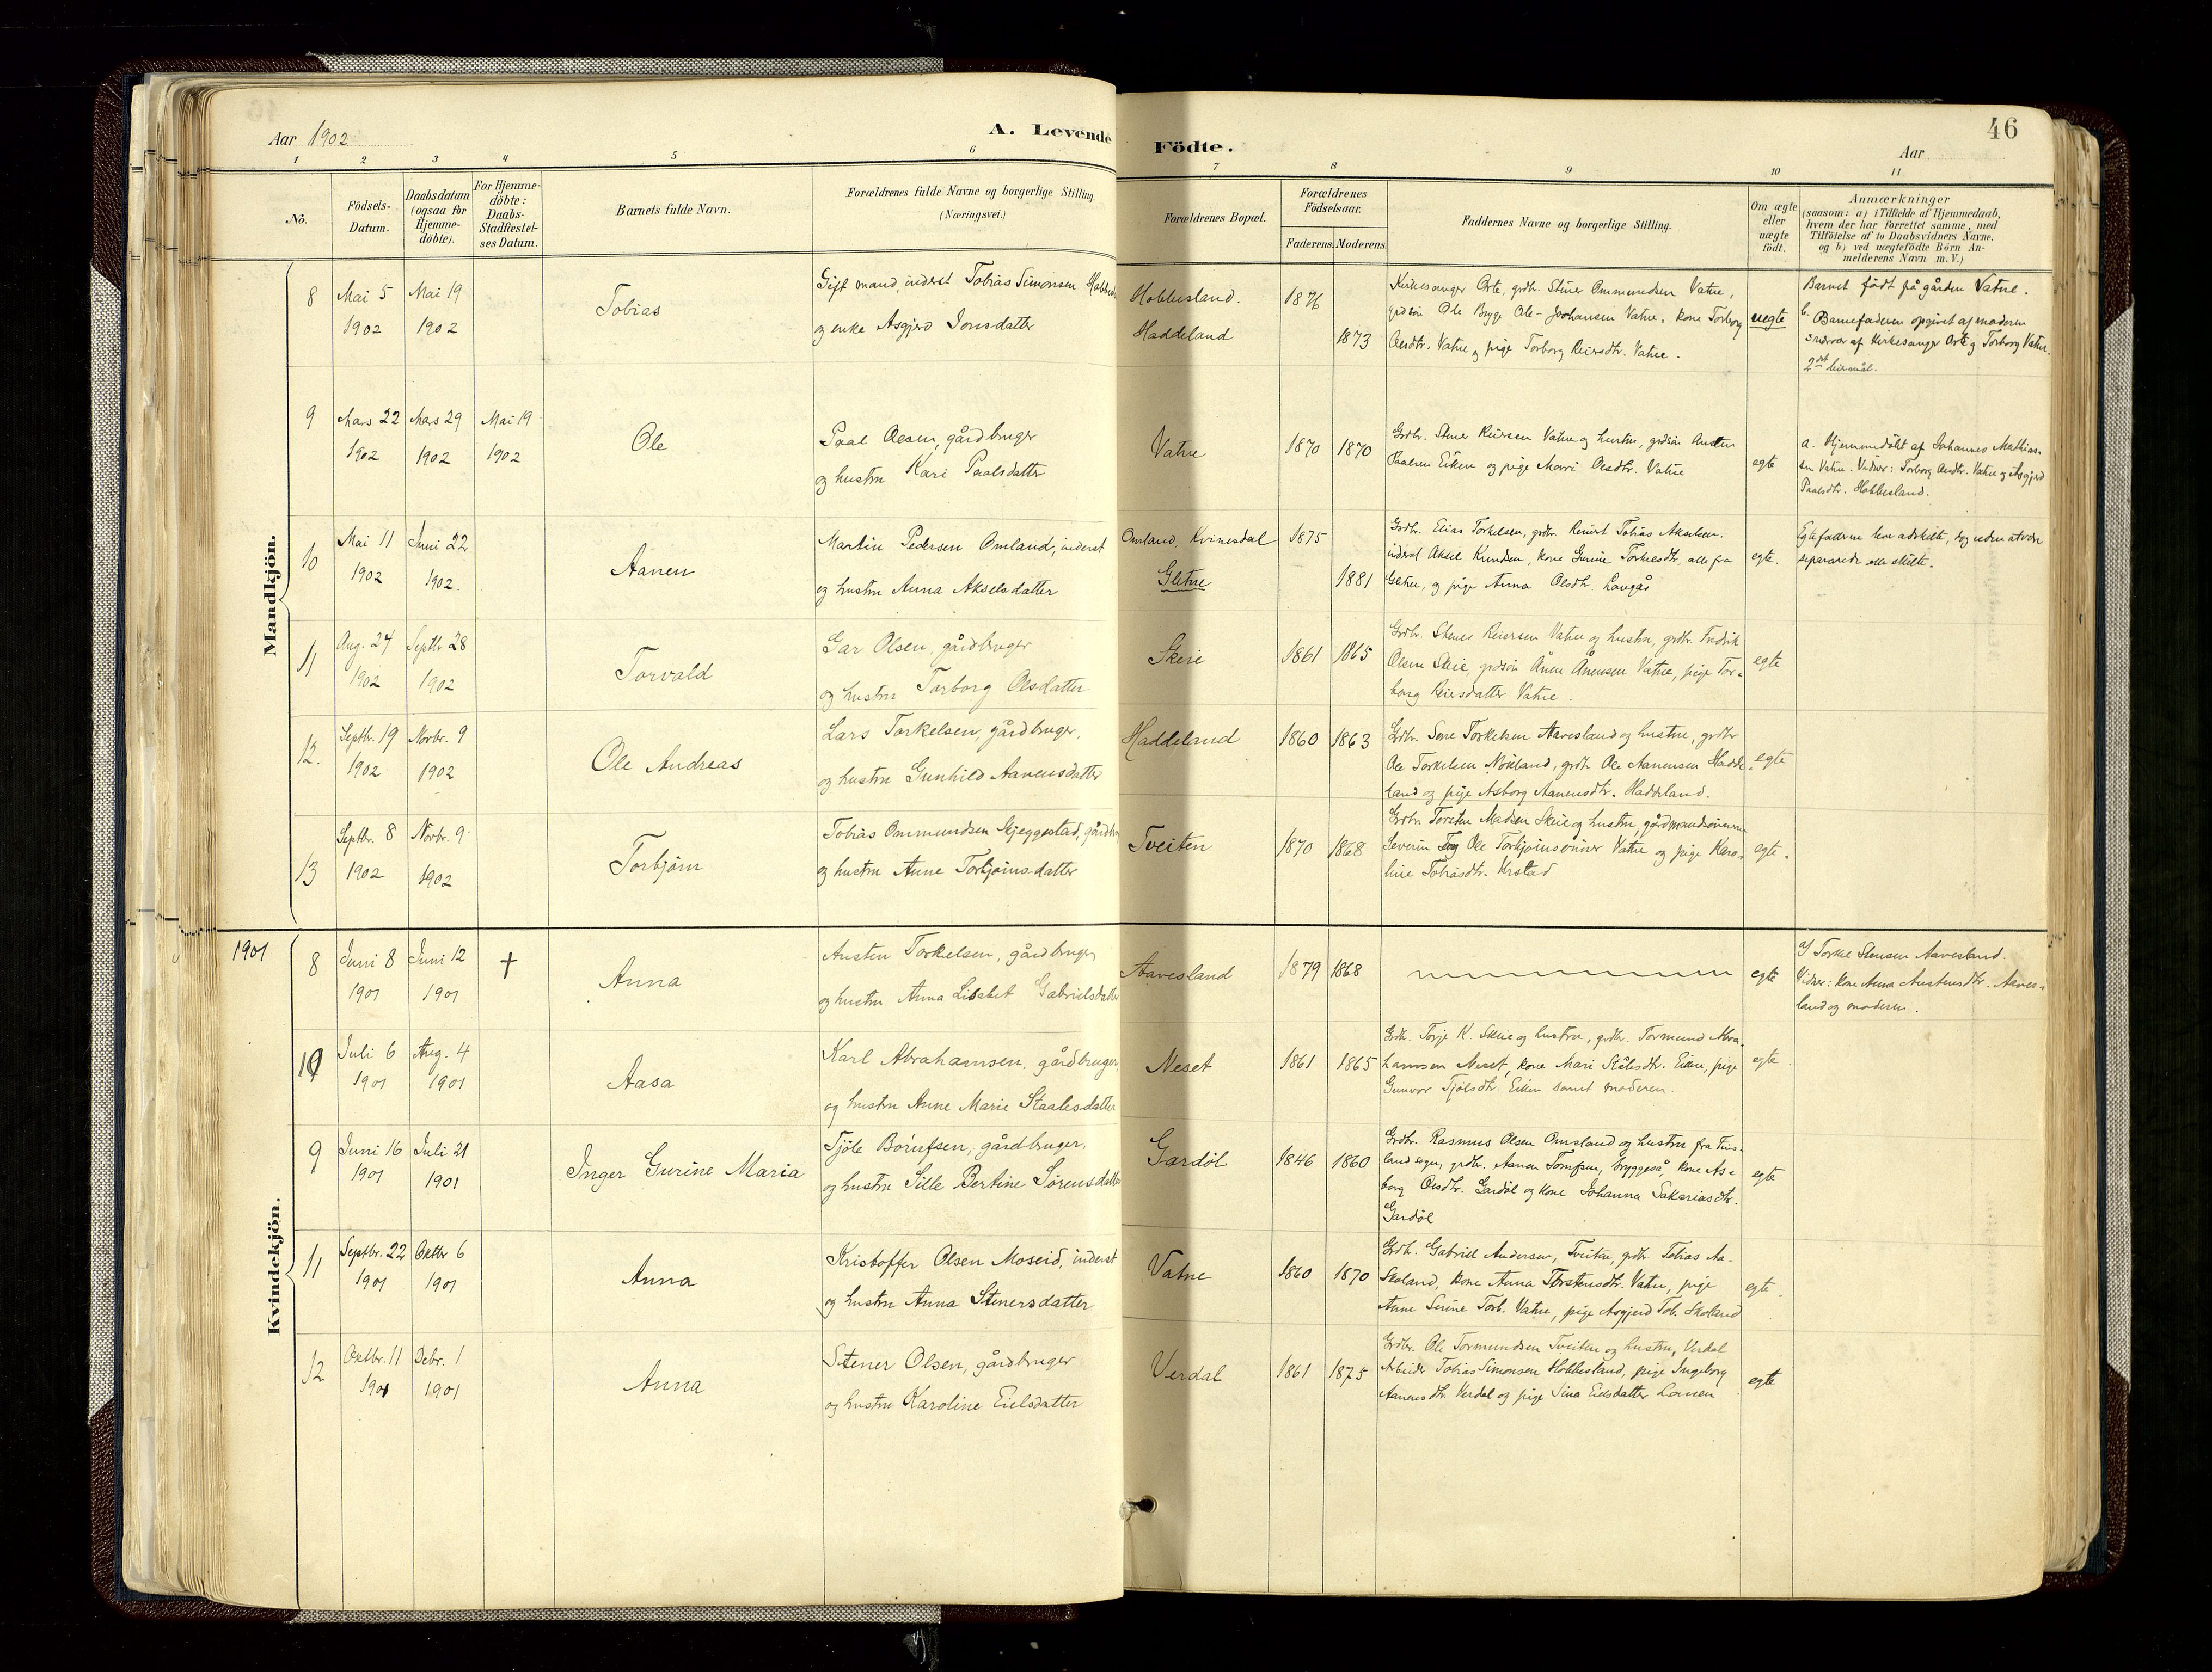 46
Aar 1902
A. Levende Födte.
Aar
1 2 3 4 5 6 7 8 9 10 11
No.
Födsels-Datum.
Daabsdatum (ogsaa for Hjemme-döbte).
For Hjemme-döbte: Daabs-Stadfæstel-ses Datum.
Barnets fulde Navn.
Forældrenes fulde Navne og borgerlige Stilling. (Næringsvei.)
Forældrenes Bopæl.
Forældrenes Födselsaar.
Faderens. Moderens.
Faddernes Navne og borgerlige Stilling.
Om ægte eller uægte födt.
Anmærkninger (saasom: a) i Tilfælde af Hjemmedaab, hvem der har forrettet samme, med Tilföielse af to Daabsvidners Navne, og b) ved uægtefödte Börn An-melderens Navn m. V.)
Mandkjön.
8 Mai 5 1902 Mai 19 1902 Tobias
Gift mand, inderst Tobias Simonsen
og enke Asgjerd Jonsdatter
Hobbesland. 1876
Haddeland 1873
Kirkesanger Orte, grdbr. Stener Ommundsen Vatne,
grdsön Ole Bryge Ole-Johansen Vatne, kone Torborg
Olesdtr. Vatne og pige Torborg Reiersdtr. Vatne.
uegte
Barnet född på gården Vatne.
b. Barnefaderen opgivet af moderen
i nærvær af Kirkesanger Orte og Torborg Vatne.
2det leiermål.
9 Mars 22 1902 Mars 29 1902 Mai 19 1902 Ole
Paal Olesen, gårdbruger
og hustru Kari Paalsdatter
Vatne 1870 1870
Grdbr. Stener Reiersen Vatne og hustru, grdsön Austen
Paalsen Eiken og pige Marri Olesdtr. Vatne
egte
a. Hjemmedöbt af Johannes Mathias-
sen Vatne. Vidner: Torborg Aasdtr. Vatne og Asgjerd
Paalsdtr. Hobbesland.
10 Mai 11 1902 Juni 22 1902. Aanen
Martin Pedersen Omland, inderst
og hustru Anna Akselsdatter
Omland, Kvinesdal 1875
Gletne 1881
Grdbr. Elias Torkelsen, grdbr. Reinert Tobias Akselsen.
inderst Aksel Knudsen, kone Gurine Torkelsdtr. alle fra
Gletne, og pige Anna Olesdtr. Langås
egte.
Egtefællerne leve adskilte, dog uden at være
separerede eller skilte.
11 Aug. 24 1902 Septbr 28 1902 Torvald
Gar Olsen, gårdbruger
og hustru Torborg Olsdatter
Skeie 1861 1865
Grdbr. Stener Reiersen Vatne og hustru, grdbr. Fredrik
Olsen Skeie, grdsön Ånen Ånensen Vatne, pige Tor-
borg Reiersdatter Vatne.
egte
12. Septbr. 19 1902 Novbr. 9 1902 Ole Andreas
Lars Torkelsen, gårdbruger,
og hustru Gunhild Aanensdatter
Haddeland 1860 1863
Grdbr. Sone Torkelsen Aavesland og hustru, grdbr
Ole Torkelsen Nökland, grdbr Ole Aanensen Hadde-
land og pige Asborg Aanensdtr. Haddeland.
egte
13 Septbr. 8 1902 Novbr. 9 1902 Torbjörn
Tobias Ommundsen Skjeggestad, gårdbr
og hustru Anne Torbjörnsdatter
Tveiten 1870 1868
Grdbr. Torsten Madsen Skeie og hustru, gårdmandssönnerne
Severin og Ole Torbjörnsönner Vatne og pige Karo-
line Tobiasdtr. Urstad
egte.
1901
Kvindekjön.
8 Juni 8 1901 Juni 12 1901 † Anna
Austen Torkelsen, gårdbruger
og hustru Anna Lisabet Gabrielsdatter
Aavesland 1879 1868
egte
Torkel Stensen Aavesland.
Vidner: kone Anna Austensdtr. Aaves-
land og moderen.
10 Juli 6 1901 Aug. 4 1901 Aasa
Karl Abrahamsen, gårdbruger
og hustru Anne Marie Staalesdatter
Neset 1861 1865
Grdbr. Torje K. Skeie og hustru, grdbr. Tormund Abra-
hamsen Neset, kone Mari Stålesdtr. Eiken, pige
Gunvor Tjölsdtr. Eiken samt moderen.
egte
9 Juni 16 1901 Juli 21 1901 Inger Gurine Maria
Tjöle Borufsen, gårdbruger,
og hustru Sille Bertine Sörensdatter
Gardöl 1846 1860
Grdbr. Rasmus Olsen Omsland og hustru fra Fins-
land sogn, grdbr. Aanen Tomfsen, Bryggeså, kone As-
borg Olesdtr. Gardöl og kone Johanna Sakariasdtr.
Gardöl
egte
11 Septbr. 22 1901 Oktbr 6 1901 Anna
Kristoffer Olsen Moseid, inderst
og hustru Anna Stenersdatter
Vatne 1860 1870
Grdb. Gabriel Andersen, Tveiten, grdbr. Tobias Aa.
Skoland, kone Anna Torstensdtr. Vatne, pige
Anne Serine Torb. Vatne, pige Asgjerd Tob. Skoland
egte.
12 Oktbr. 11 1901 Debr. 1 1901 Anna
Stener Olsen, gårdbruger
og hustru Karoline Eielsdatter
Verdal 1861 1875
Grdbr. Ole Tormundsen Tveiten og hustru, Verdal
Arbeider Tobias Simonsen Hobbesland, pige Ingeborg
Aanensdtr. Verdal og pige Sina Eielsdatter Lonsen
egte